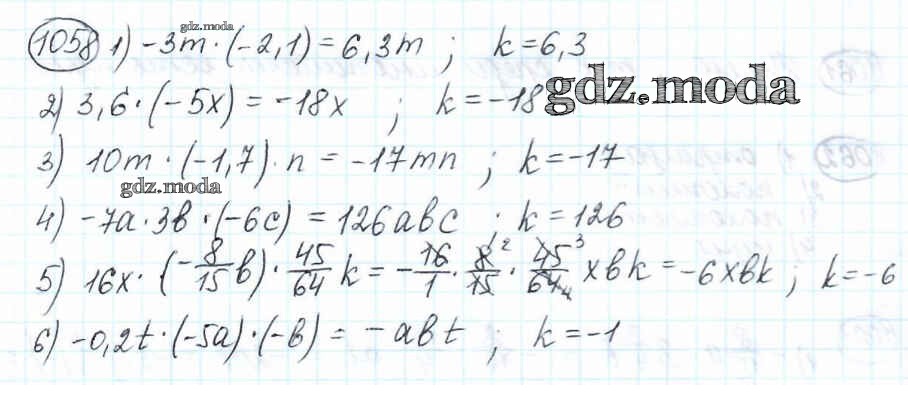 gdz.moda
1058 1) -3m · (-2,1) = 6,3m ; k = 6,3
gdz.moda
2) 3,6 · (-5x) = -18x ; k = -18
3) 10m · (-1,7) · n = -17mn ; k = -17
gdz.moda
4) -7a · 3b · (-6c) = 126abc ; k = 126
5) 16x · (-8/15 b) · 45/64 k = -16/1 · 8²/15 · 45³/64₄ xbk = -6xbk ; k = -6
6) -0,2t · (-5a) · (-b) = -abt ; k = -1